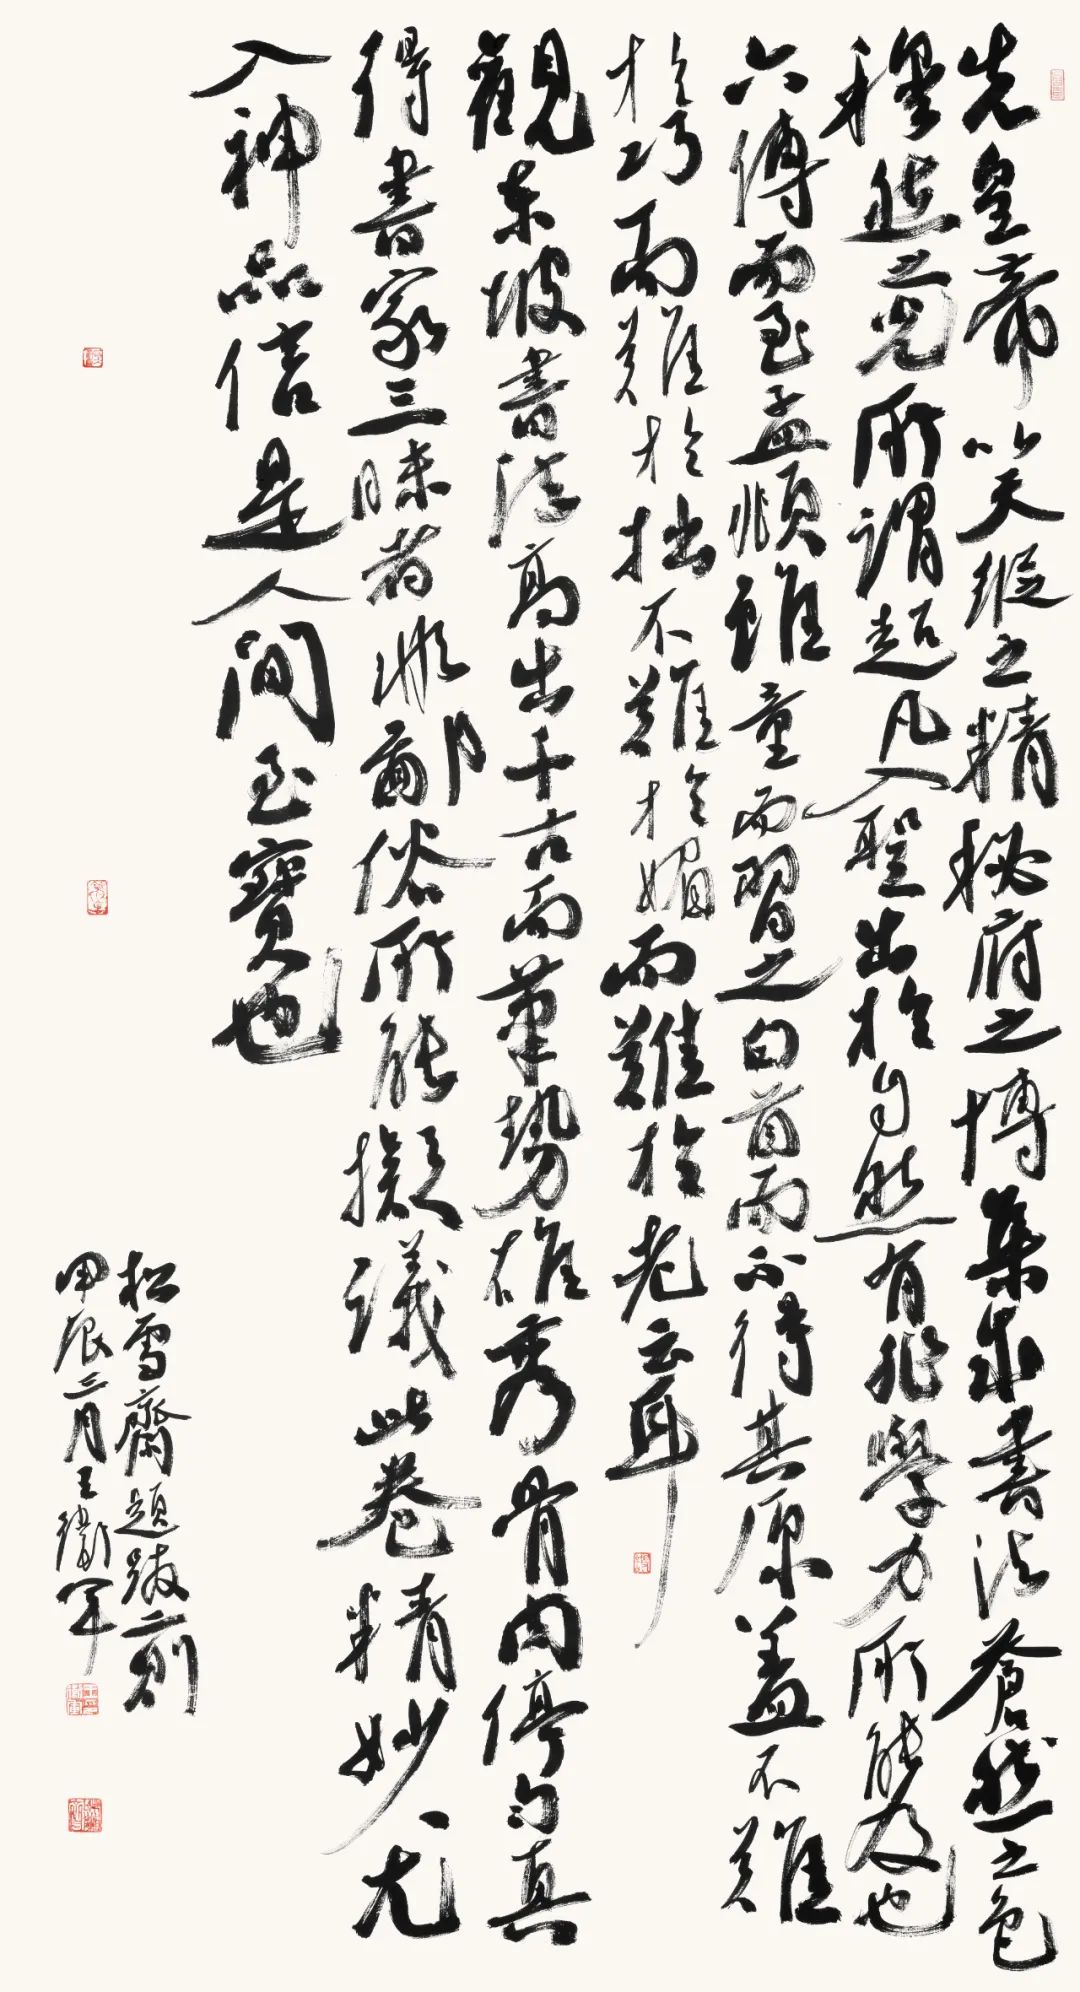 先皇帝以天縱之精秘府之博集求書法蒼然之色
穆然之光所謂超凡入聖出於自然有非學力所能及也
六傳而至孟頫雖童而習之白首而不得其原蓋不難
於巧而難於拙不難於媚而難於老云耳
觀東坡書法高出千古而筆勢雄秀骨肉停勻真
得書家三昧者非鄙俗所能擬議此卷精妙尤
入神品信是人間至寶也
松雪齋題跋二則
甲辰三月王衛軍